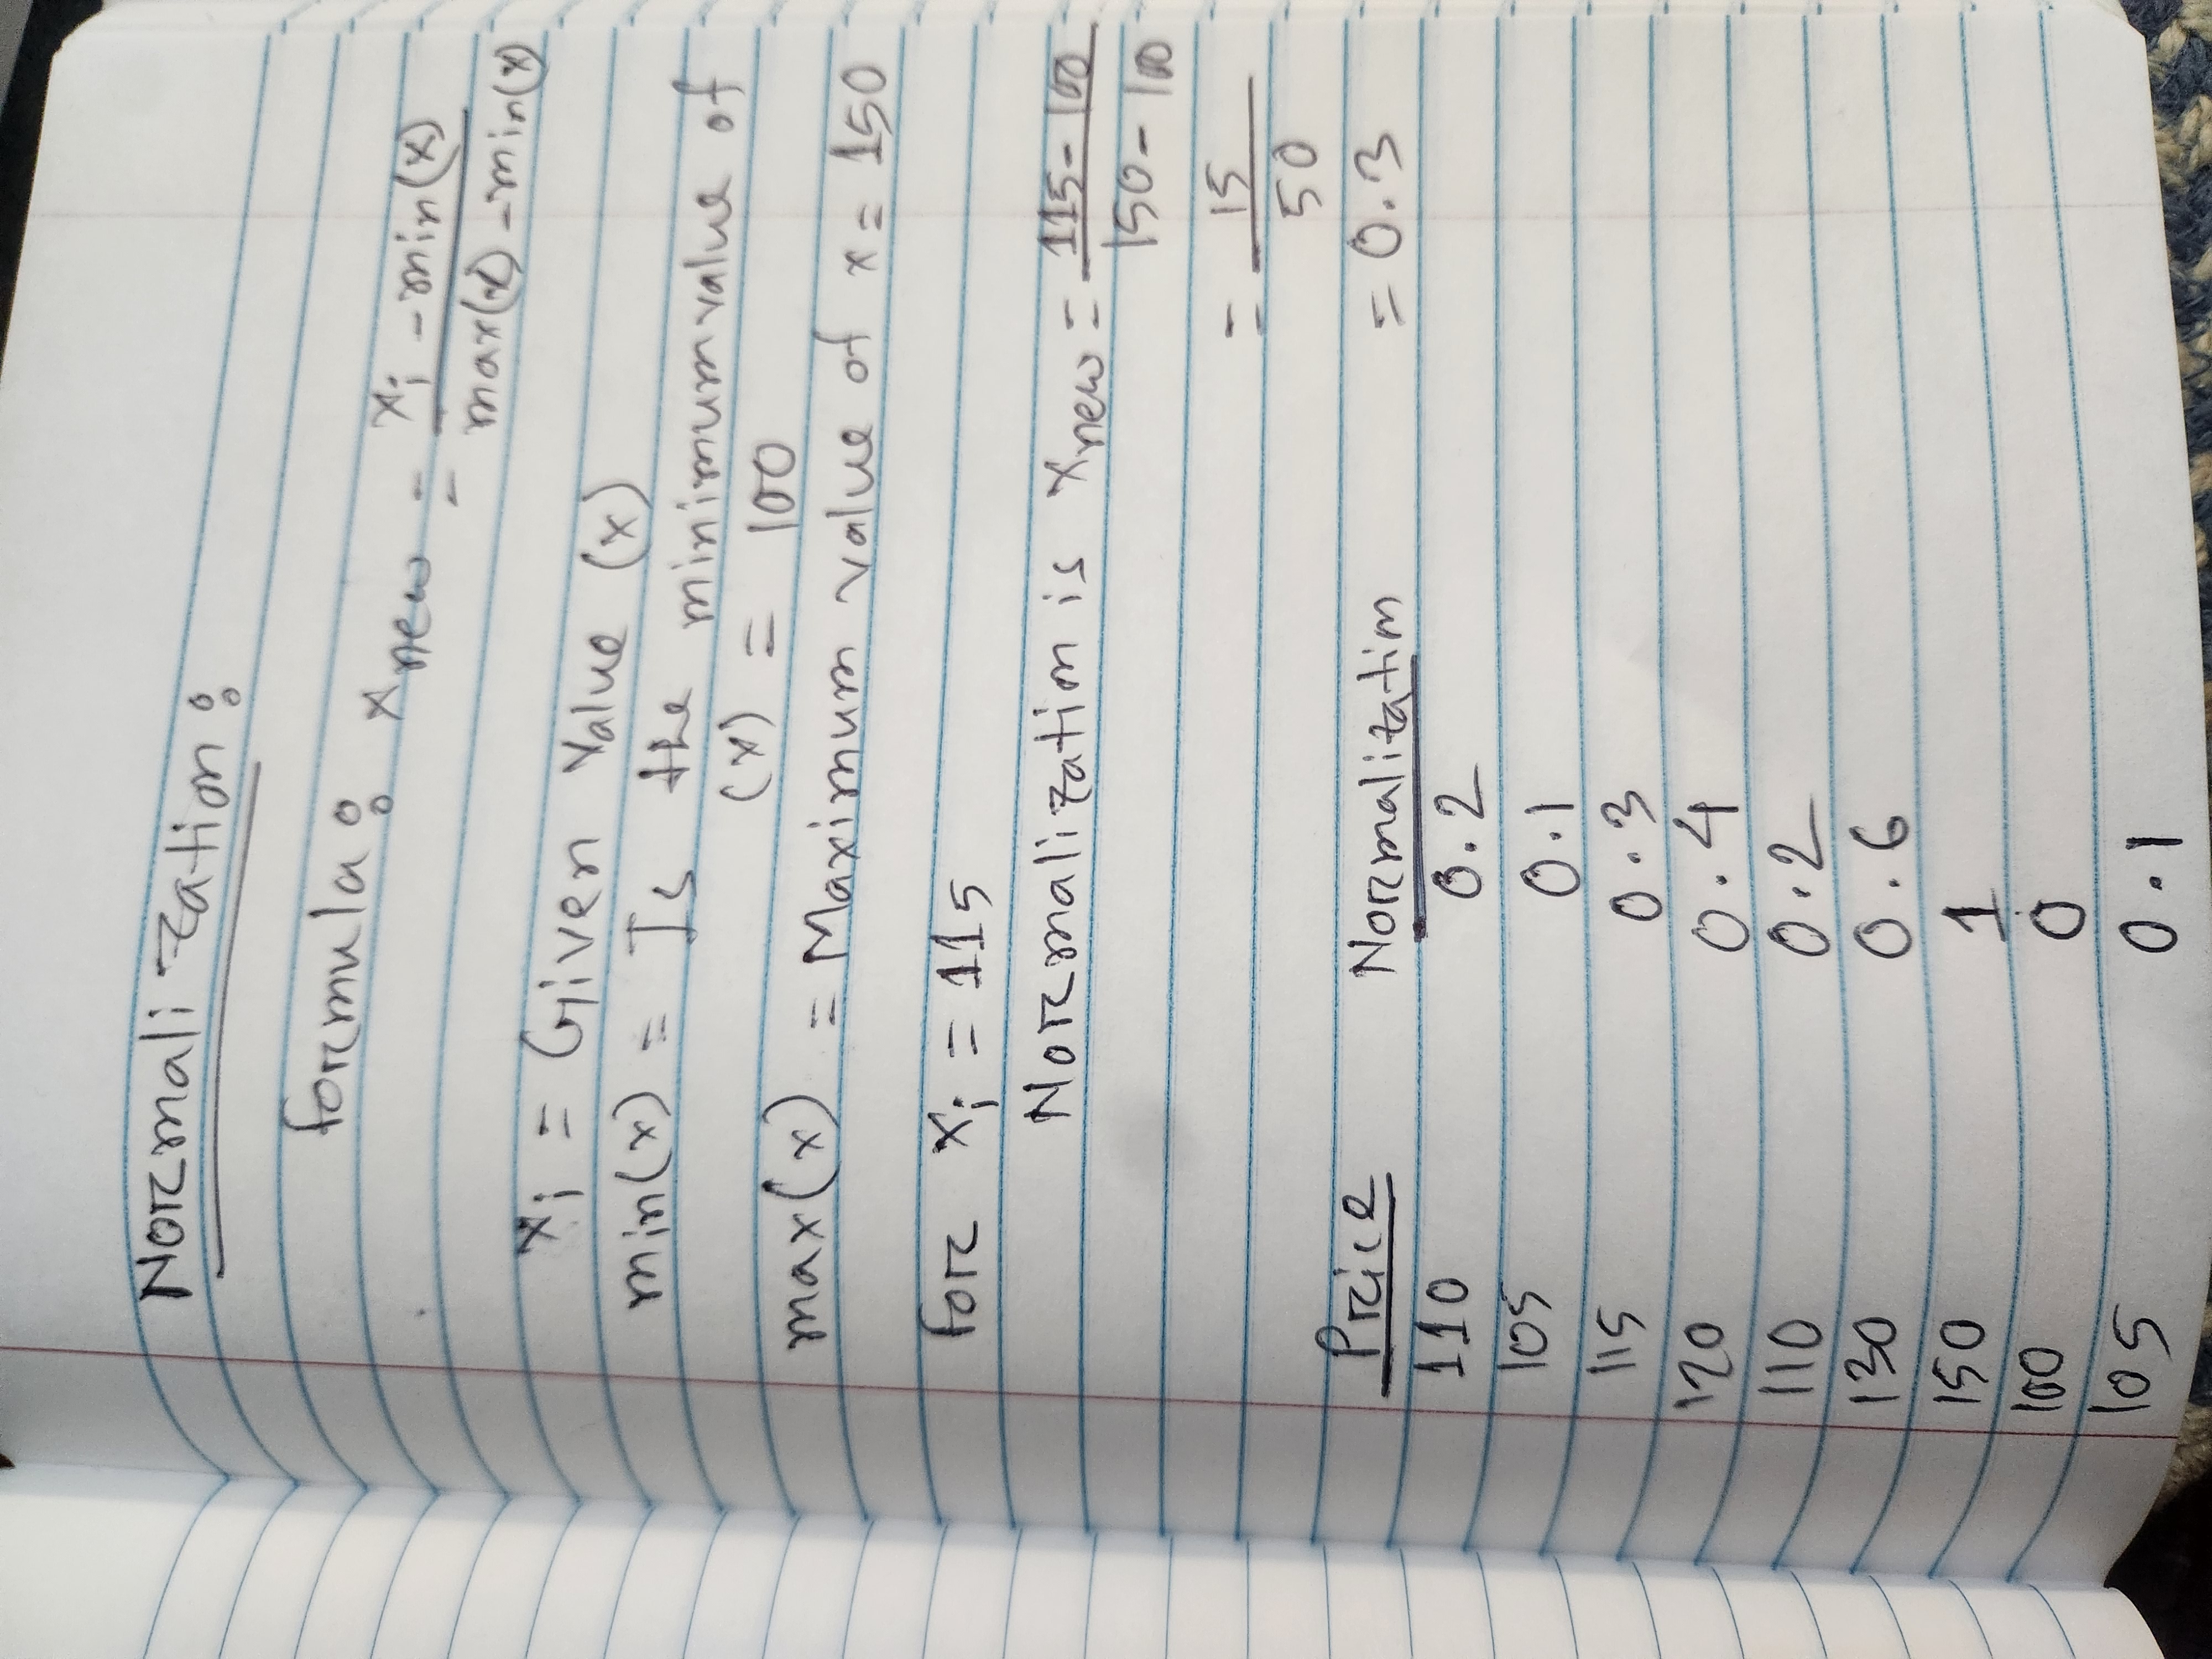 Normalization:
formula: x new = xi - min(x) / max(x) - min(x)
xi = Given value (x)
min(x) = Is the minimum value of
(x) = 100
max(x) = Maximum value of x = 150
for xi = 115
Normalization is xnew = 115 - 100 / 150 - 100
= 15 / 50
= 0.3
Price Normalization
110 0.2
105 0.1
115 0.3
120 0.4
110 0.2
130 0.6
150 1
100 0
105 0.1